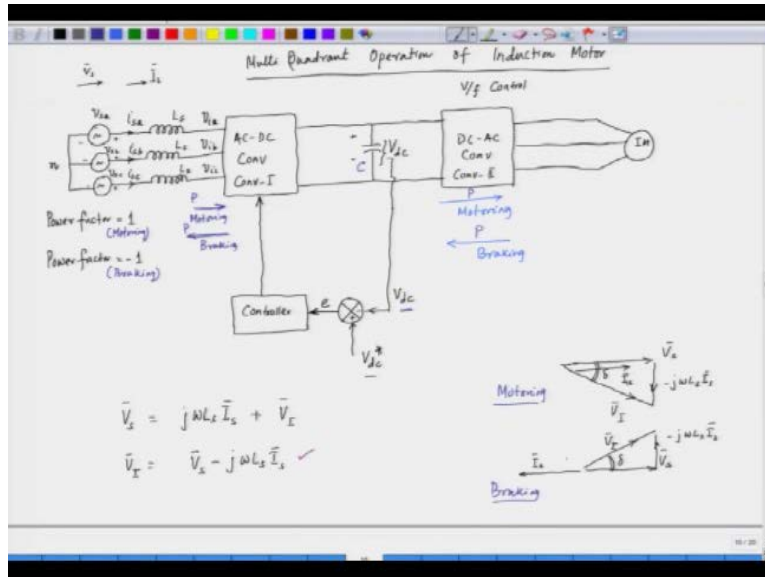 Multi Quadrant Operation of Induction Motor
V/f Control
V̄s Īs
Vsa isa Ls Via
Vsb isb Ls Vib
Vsc isc Ls Vic
n
AC-DC
Conv
Conv-I
+
-
C
Vdc
DC-AC
Conv
Conv-II
IM
P
Motoring
P
Braking
P
Motoring
P
Braking
Power factor = 1
(Motoring)
Power factor = -1
(Braking)
Controller
e
Vdc
+
-
Vdc*
V̄s = jωLs Īs + V̄I
V̄I = V̄s - jωLs Īs ✓
Motoring
V̄s
δ
Īs
-jωLs Īs
V̄I
Braking
Īs
V̄I
δ
-jωLs Īs
V̄s